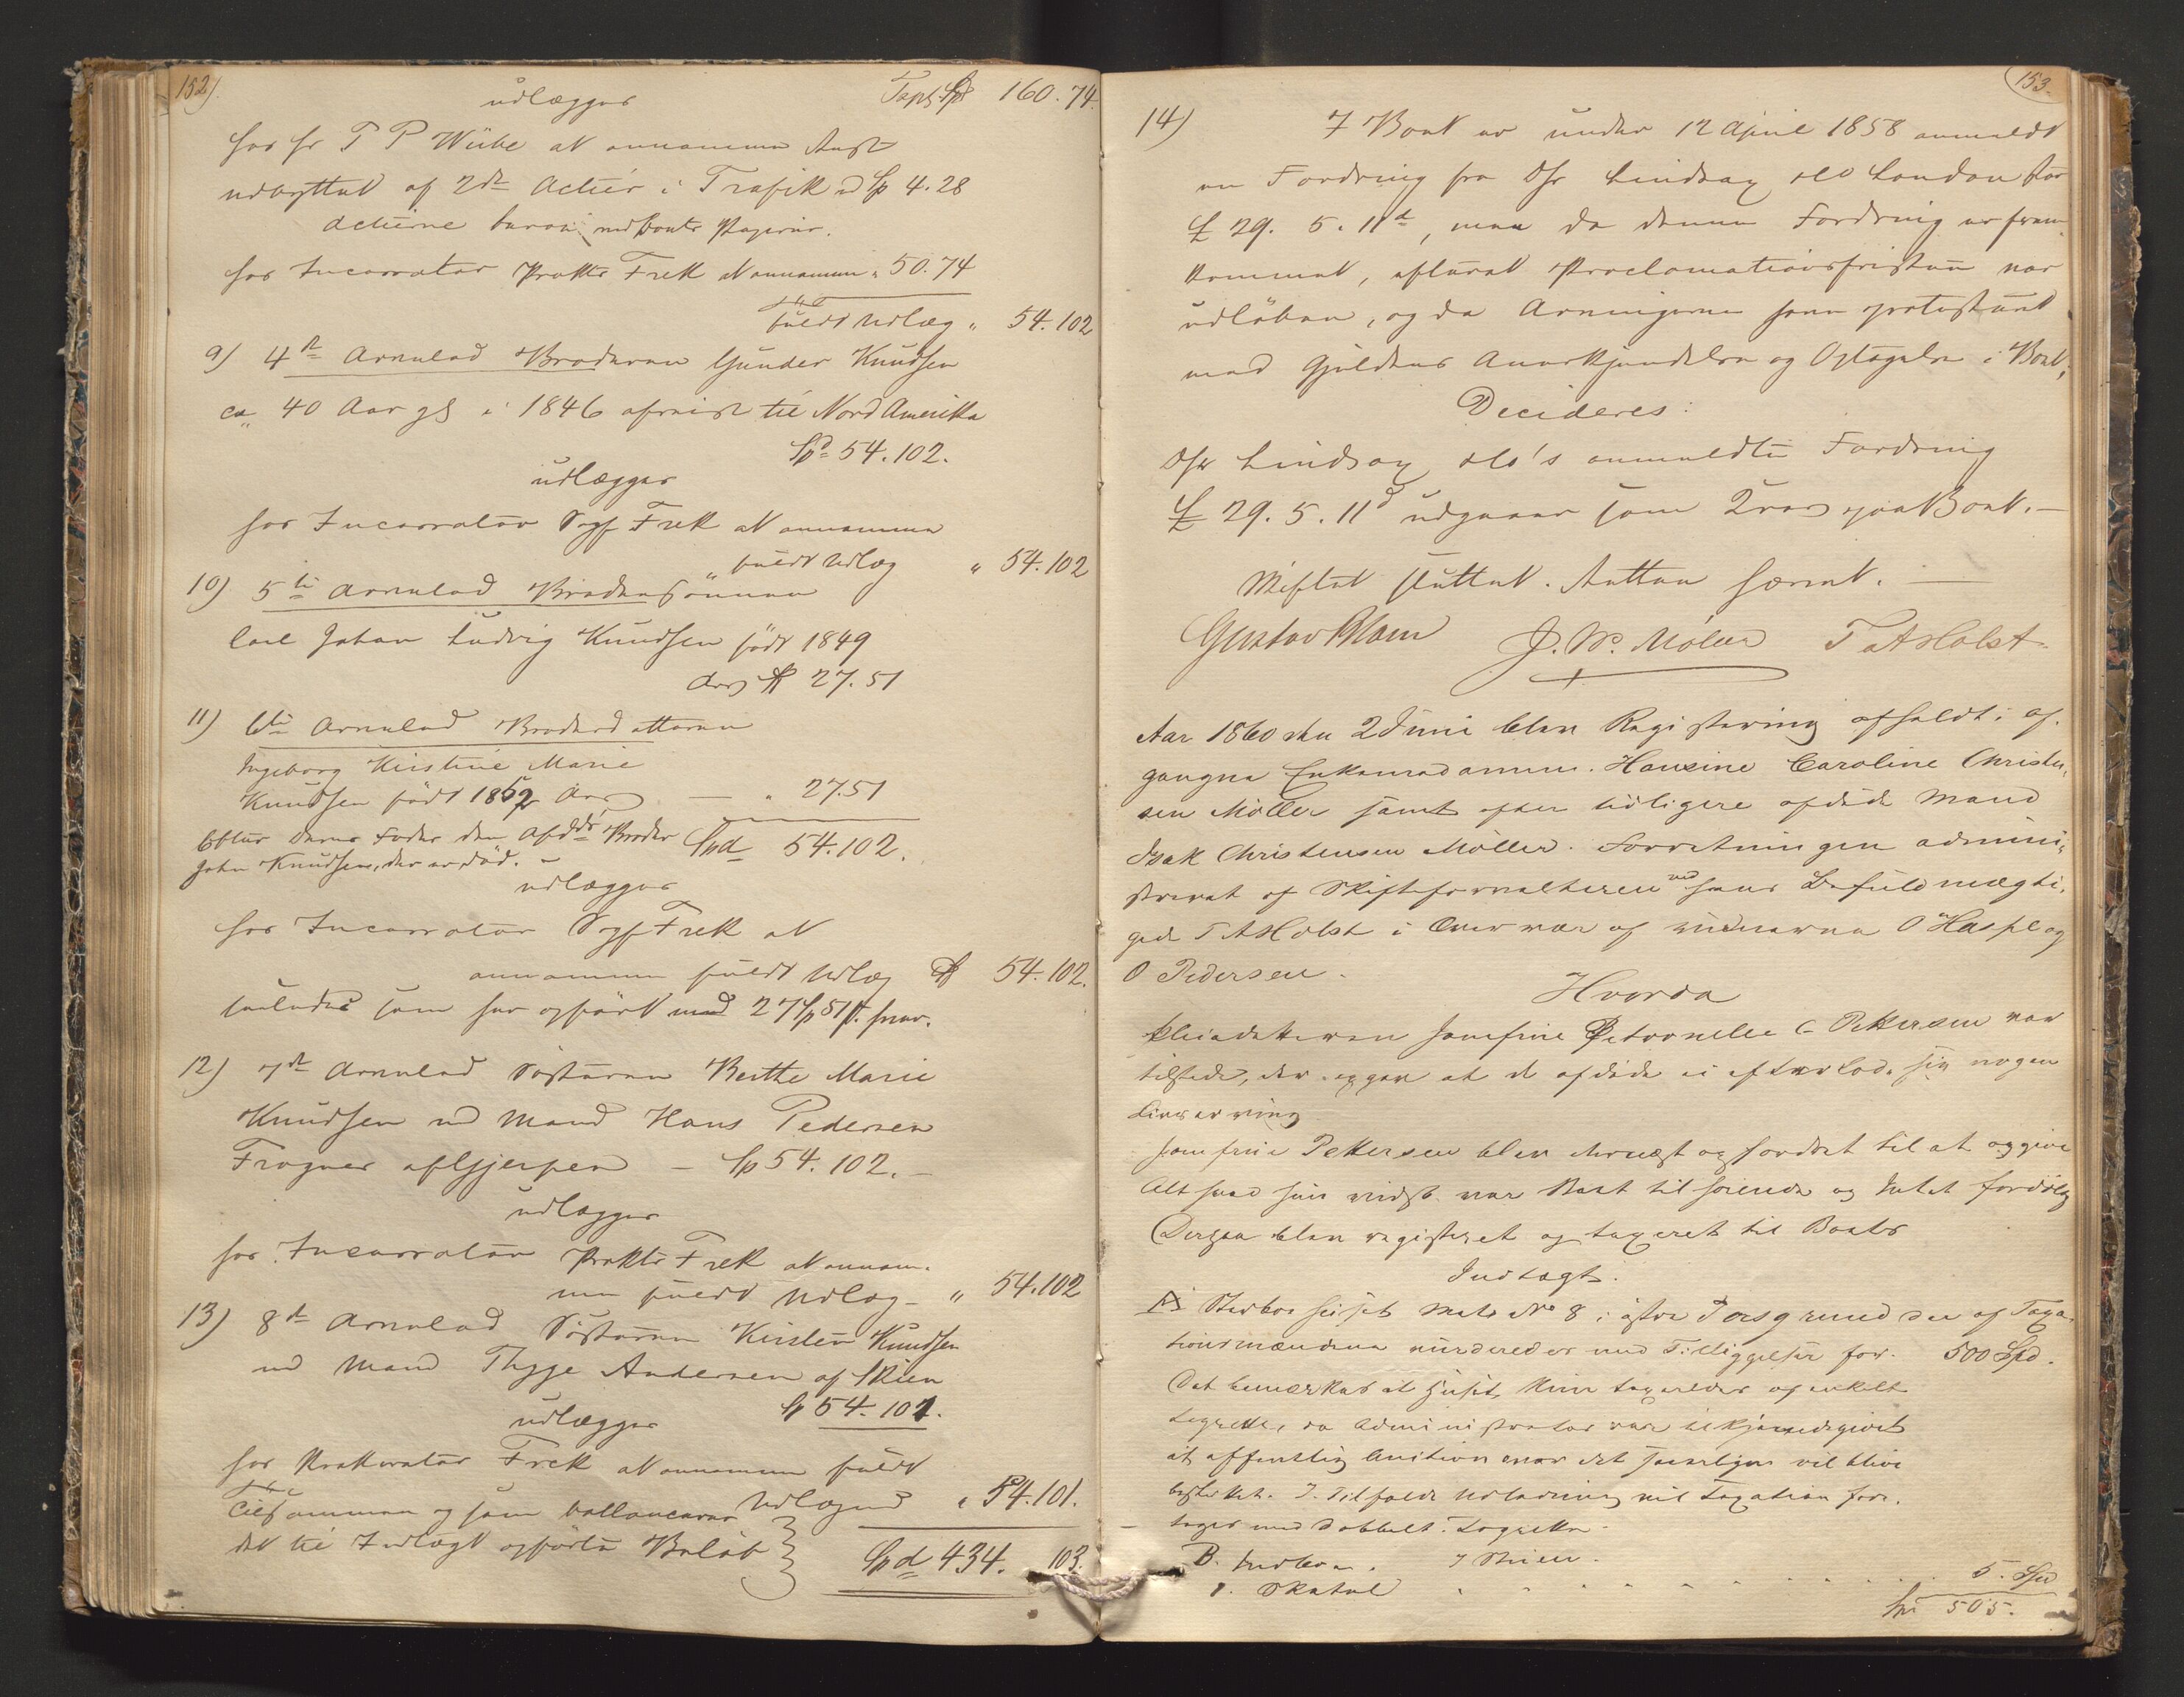 152).
udlægges Tspt. Spd 160.74.
hos Hr T P Wiibe at annamme Aust
udbyttet af 2de Actier i Trafik " Sp 4.28
Actierne beroe med Boets Papirer.
hos Incassator Prokter Frek at annamme " 50.74
fuldt Udlæg " 54.102
9) 4de Arvelod Broderen Gunder Knudsen
ca 40 Aar gl i 1846 afreist til Nord Amerika
Spd 54.102.
udlægges
hos Incassator Sagf Frek at annamme
fuldt Udlæg " 54.102
10) 5te Arvelod Brodersønnen
Carl Johan Ludvig Knudsen født 1849
Arv Spd 27.51
11) 6te Arvelod Broderdatteren
Ingeborg Kirstine Marie
Knudsen født 1852 Arv — " 27.51
Efter deres Fader den Afdødes Broder Spd 54.102.
John Knudsen, der er død. –
udlægges
hos Incassator Sagf Frek at
annamme fuldt Udlæg Spd 54.102.
saaledes som her opført med 27 Sp 51 s. hver.
12) 7de Arvelod Søsteren Berthe Marie
Knudsen ved Mand Hans Pedersen
Frogner af Gjerpen – Sp 54.102. –
udlægges
hos Incassator Prokter Frek at annam-
me fuldt Udlæg – " 54.102
13) 8de Arvelod Søsteren Kirsten Knudsen
ved Mand Thygge Andersen af Skien
Sp 54.101.
udlægges
hos Prokurator Frek at annamme fuldt
Udlæg med " 54.101.
Tilsammen og som ballancerer
det til Indtægt opførte Beløb Spd 434. 103.
153.
14) I Boet er under 12 April 1858 anmeldt
en Fordring fra Dhr Lindsay & Co London stor
£ 29. 5. 11d, men da denne Fordring er frem-
kommet, efterat Proclamationsfristen var
udløben, og da Arvingerne have protesteret
mod Gjældens Anerkjendelse og Optagelse i Boet,
Decideres:
Dhr Lindsay & Co's anmeldte Fordring
£ 29. 5. 11d udgaaer som Krav paa Boet. –
Skiftet sluttet. Retten hævet. —
Gustav Blom J. W. Möller T A Holst
Aar 1860 den 2 Juni blev Registering afholdt i af-
gangne Enkemadamme. Hansine Caroline Christen-
sen Møller samt efter tidligere afdøde Mand
Isak Christensen Møller. Forretningen admini-
streret af Skifteforvalteren ved hans Befuldmægti-
gede T A Holst i Overvær af vidnerne O Hasfl og
O Pedersen.
Hvorda
Pleiedatteren Jomfrue Petronelle C Pettersen var
tilstede, der opgav at de afdøde ei efterlod sig nogen
Livsarving
Jomfrue Pettersen blev dernæst opfordret til at opgive
Alt hvad hun vidste var Boet tilhørende og Intet fordølge
Derpaa blev registeret og taxeret til Boets
Indtægt:
A Sterboehuset Matr No 8 i østre Porsgrund der af Taxa-
tionsmændene vurderedes med Tilliggelser for. 500 Spd.
Det bemærkes at huset kun taxeredes af enkelt
Lagrette, da Administrator var tilkjendegivet
at offentlig Auction over det formeligen vil blive
besluttet. I Tilfælde Udlodning vil Taxation fore-
tages med dobbelt Lagrette.
B. Indboe. I Stuen.
1. Skatol " " " " " . . . . 5. Spd
Spd 505.